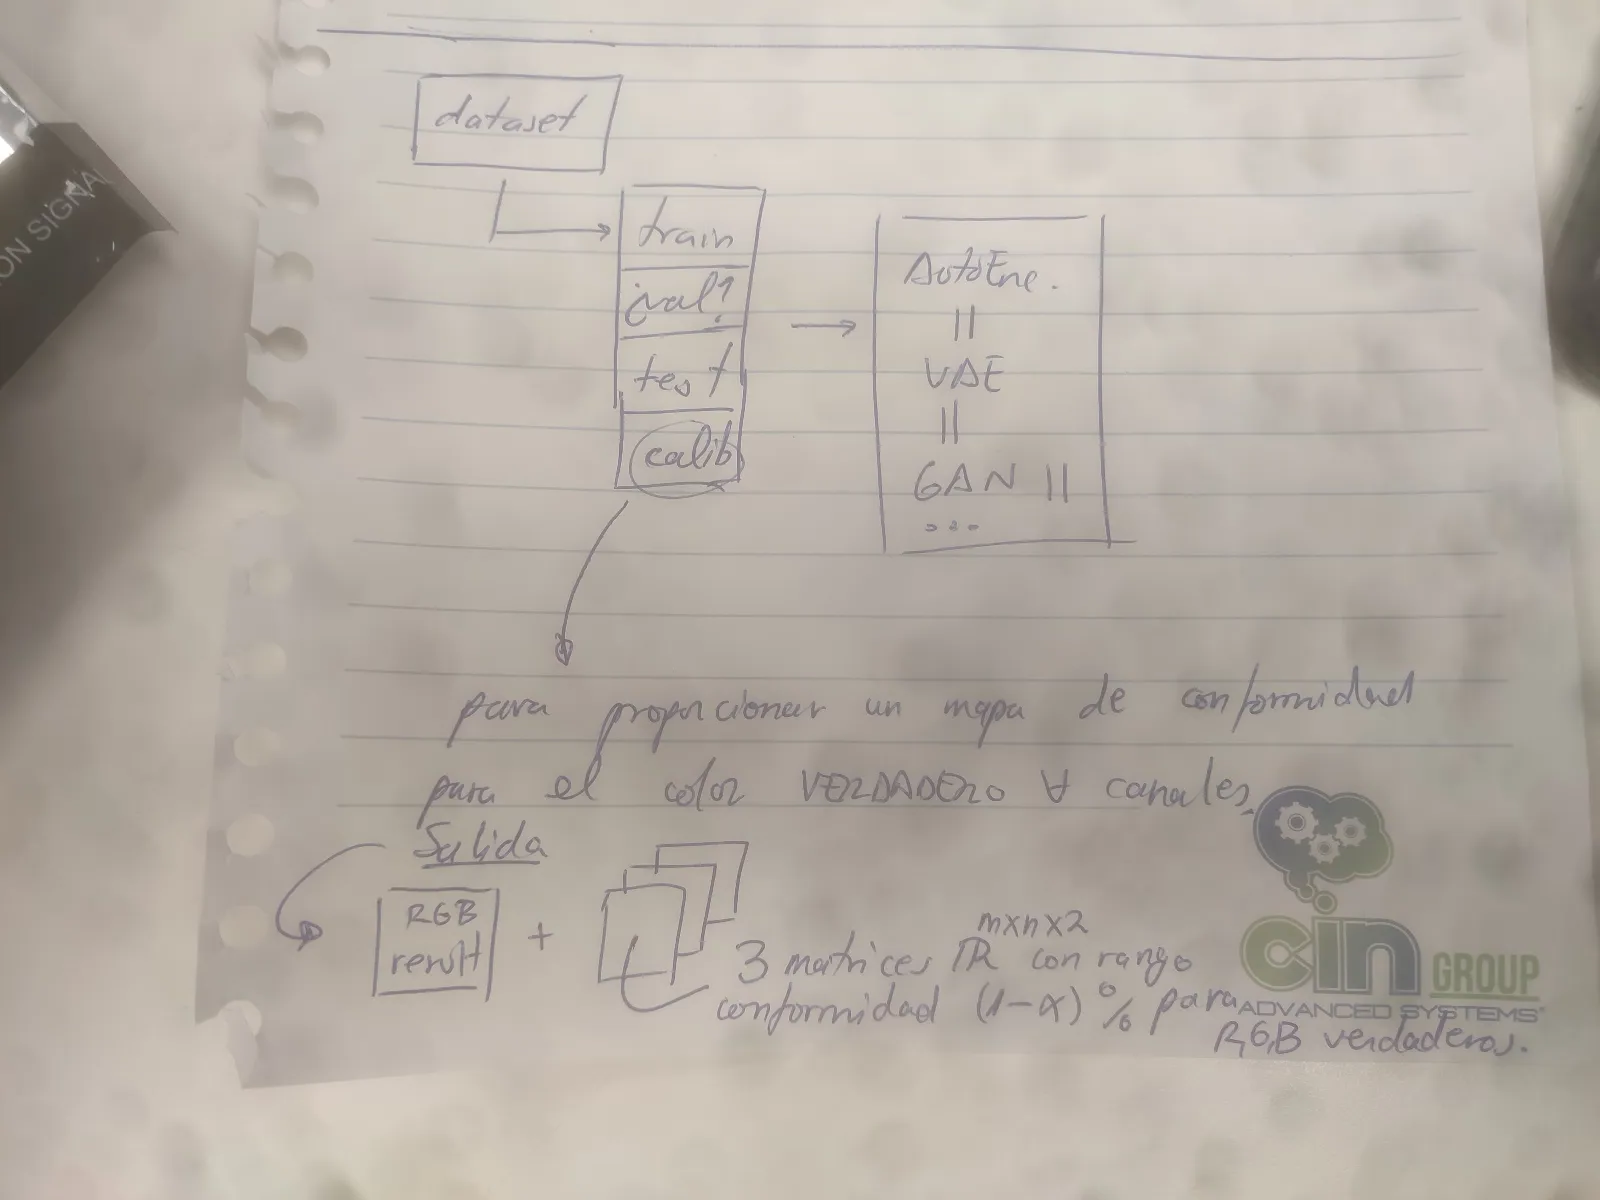 dataset
train
¿val?
test
calib
AutoEnc.
||
VAE
||
GAN ||
...
para proporcionar un mapa de conformidad
para el color VERDADERO ∀ canales
Salida
RGB
result
+
3 matrices ℝ^{m×n×2} con rango
conformidad (1-α)% para
R,G,B verdaderos.
cin GROUP
ADVANCED SYSTEMS
ON SIGNA